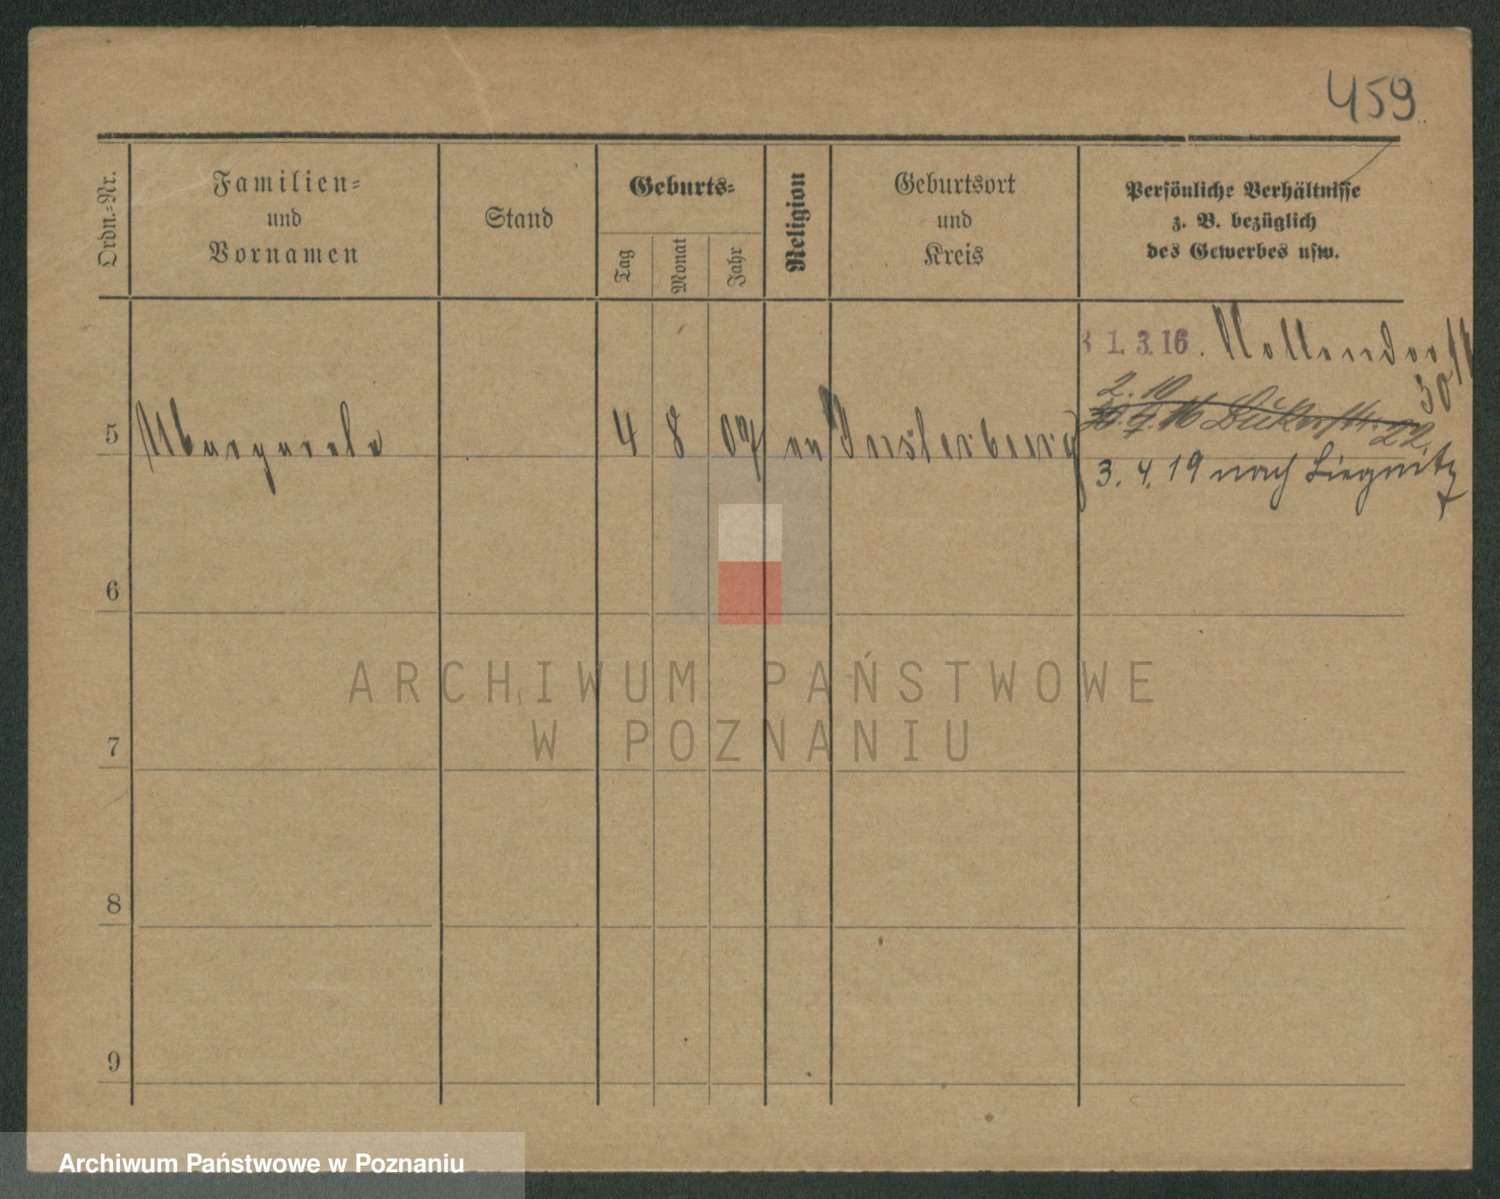 459
Ordn.-Nr.
Familien-
und
Vornamen
Stand
Geburts-
Tag
Monat
Jahr
Religion
Geburtsort
und
Kreis
Persönliche Verhältnisse
z. B. bezüglich
des Gewerbes usw.
1. 3. 16. Nollendorfst
30
2. 10
22
5 Margarete 4 8 07 ev Insterburg
3. 4. 19 nach Liegnitz
6
7
8
9
ARCHIWUM PAŃSTWOWE
W POZNANIU
Archiwum Państwowe w Poznaniu